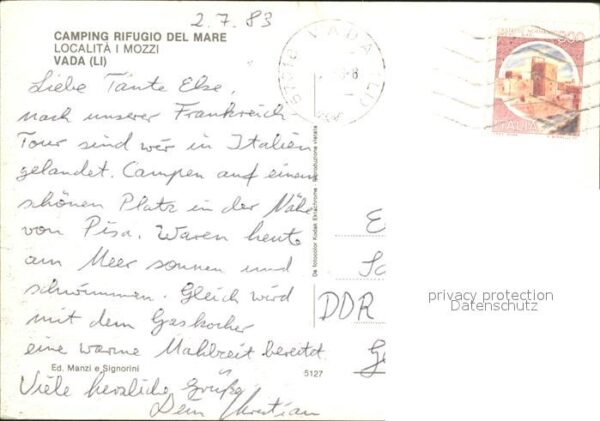 2.7.83
CAMPING RIFUGIO DEL MARE
LOCALITÀ I MOZZI
VADA (LI)
57018 VADA (LI)
300
ITALIA
Liebe Tante Else,
nach unserer Frankreich
Tour sind wir in Italien
gelandet. Campen auf einem
schönen Platz in der Nähe
von Pisa. Waren heute
am Meer sonnen und
schwimmen. Gleich wird
mit dem Gaskocher
eine warme Mahlzeit bereitet.
Viele herzliche Grüße
Dein Christian
Ed. Manzi e Signorini
5127
Da fotocolor Kodak Ektachrome - Riproduzione vietata
E
DDR
privacy protection
Datenschutz